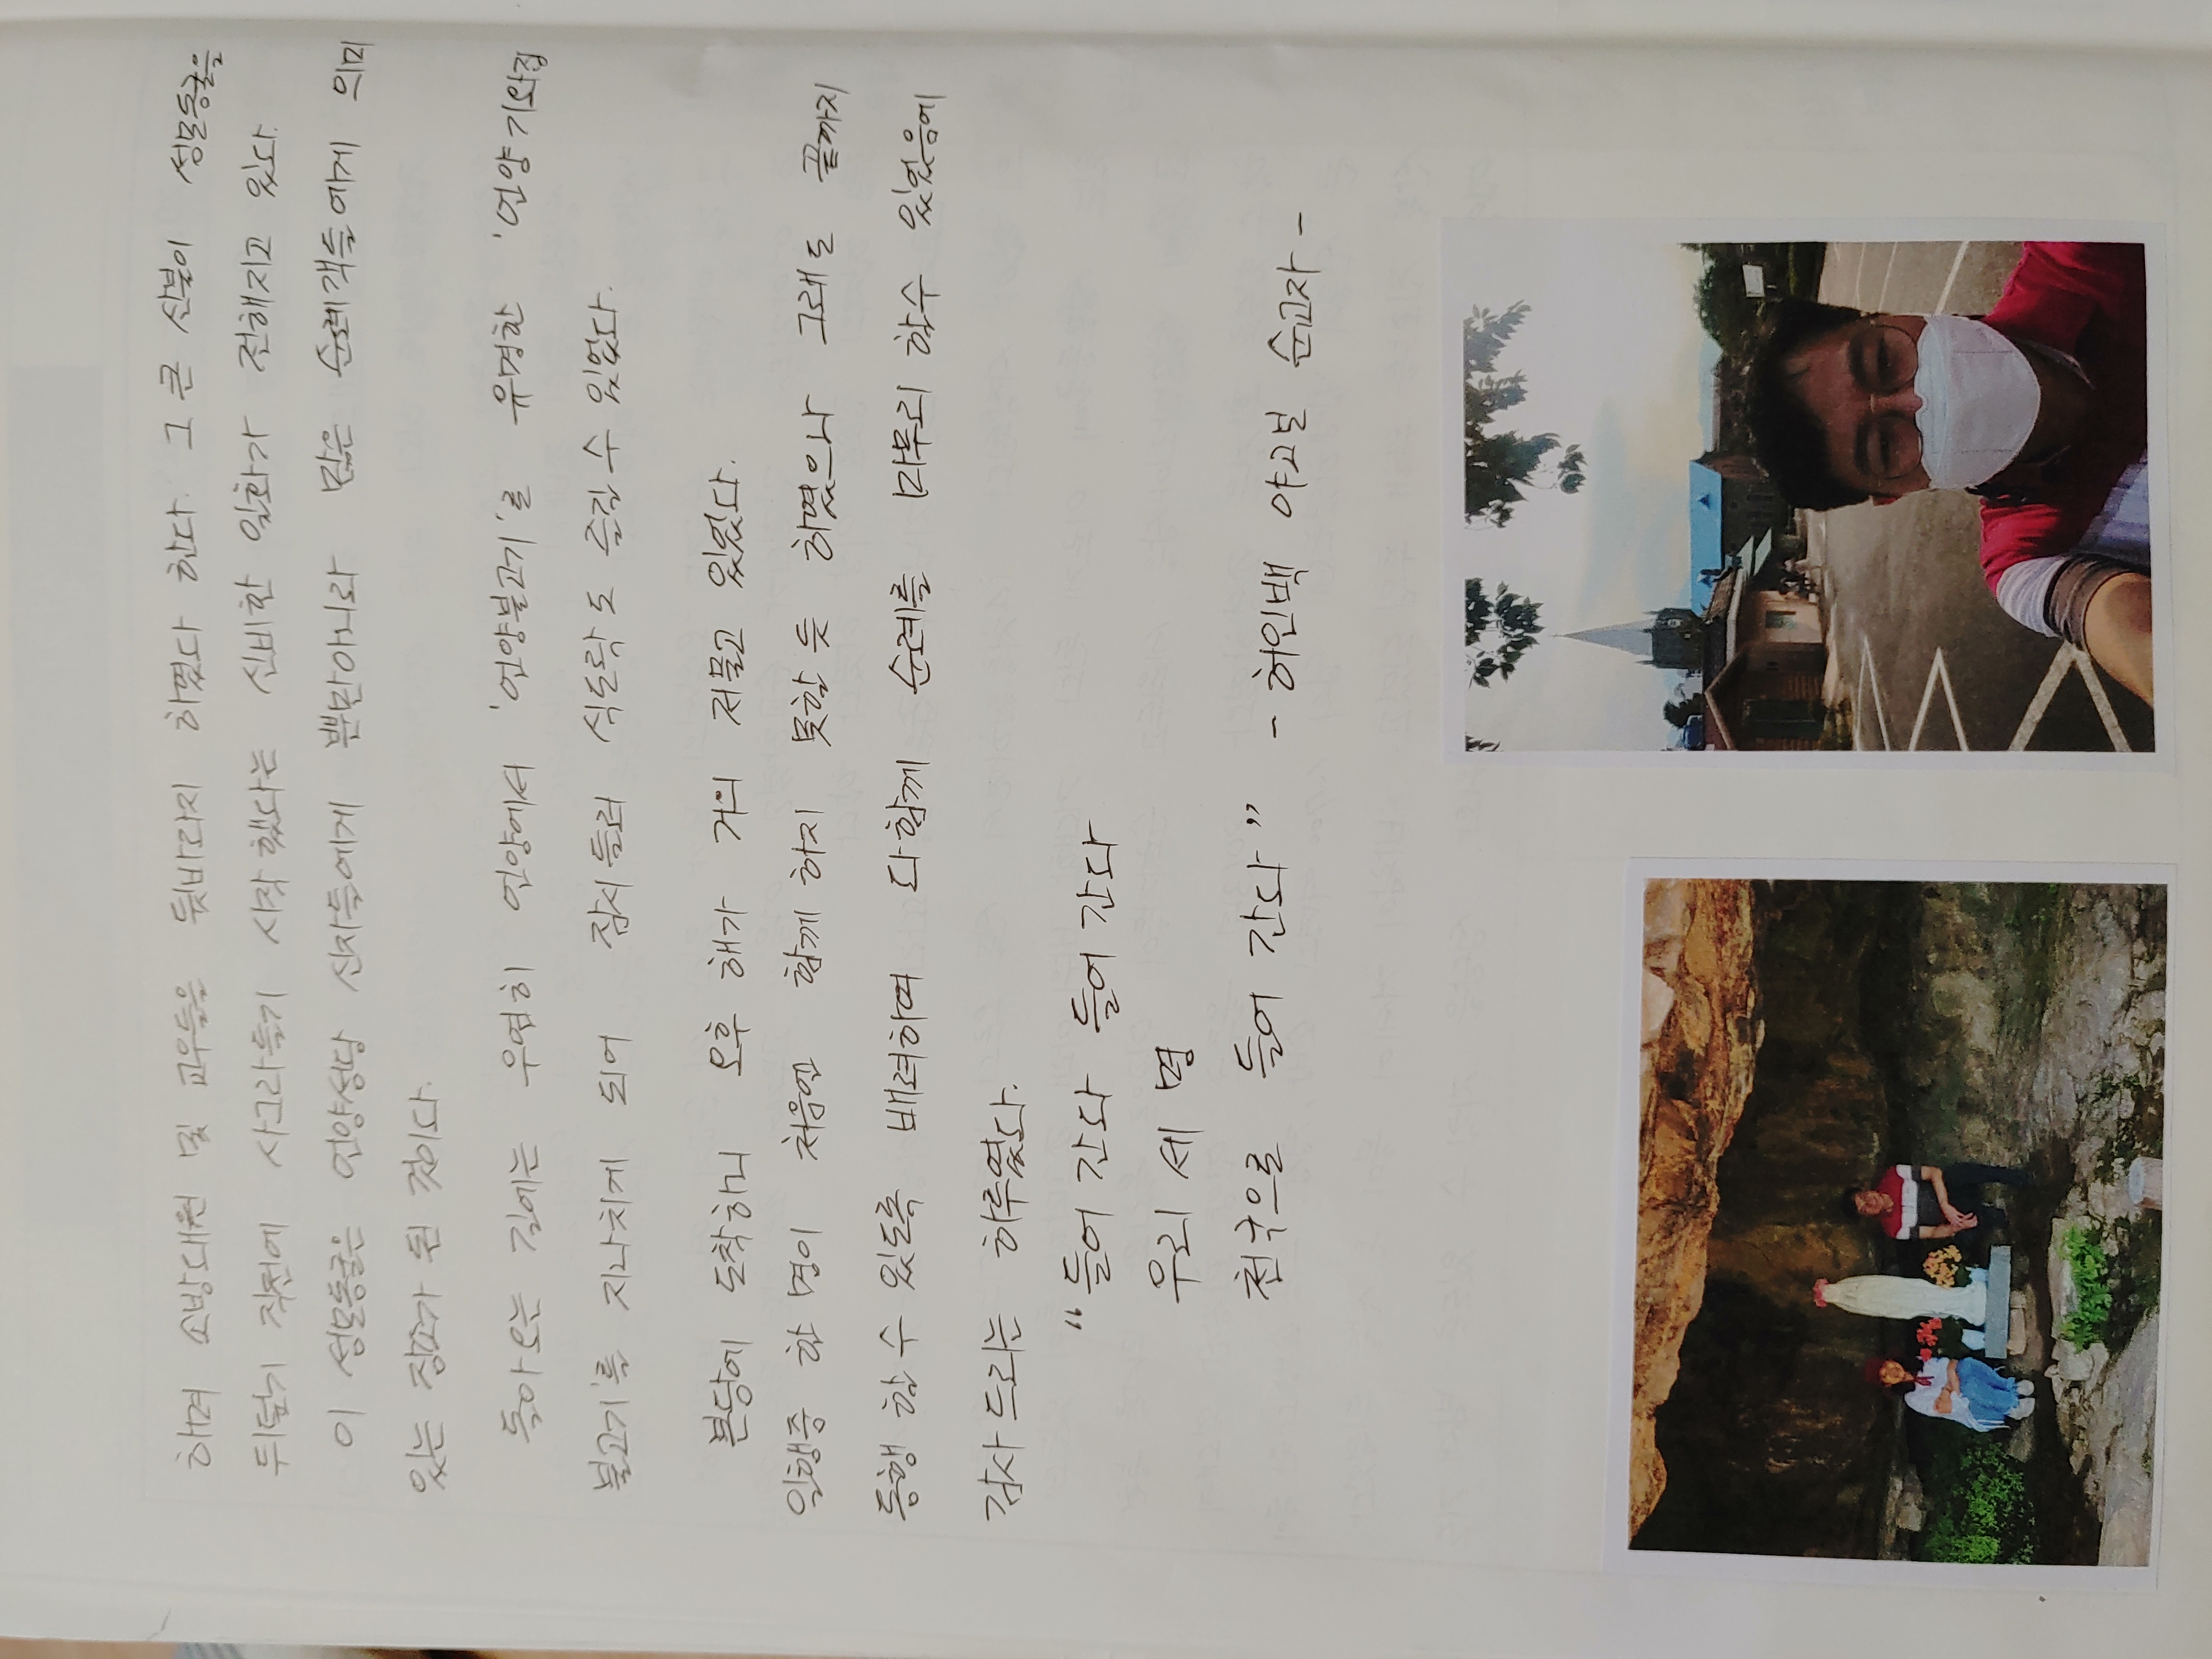 하려 소방대원 및 교우들은 뒷바라지 하였다 한다. 그 큰 산불이 성모동굴을
뒤덮기 직전에 사그라들기 시작했다는 신비한 일화가 전해지고 있다.
이 성모동굴은 언양성당 신자들에게 뿐만아니라 많은 순례객들에게 의미
있는 장소가 된 것이다.
돌아오는 길에는 우연히 언양에서 '언양불고기'로 유명한 '언양기와집
불고기'를 지나치게 되어 잠시들러 식도락도 즐길 수 있었다.
본당에 도착하니 오후 해가 거의 저물고 있었다.
일행중 한 명이 처음엔 함께 하지 못할 듯 하였으나 그래도 끝까지
동행 할 수 있도록 배려하며 다함께 순례를 마무리 할수 있었음에
감사 드리는 하루였다.
“들어 간다 들어 간다
우리 세 명
천국으로 들어 간다” - 허인백 야고보 순교자 -